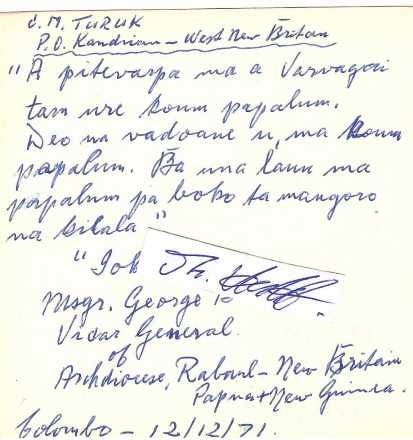 Č. M. TURUK
P.O. Kandrian – West New Britain
"A pitevarpa ma a Varvagoai
tam ure koum papalum.
Deo na vadoane u, ma koum
papalum. Ba una laun ma
papalum pa boko ta mangoro
na kilala"
"Iok
Msgr. George
Vicar General
of
Archdiocese, Rabaul – New Britain
Papua + New Guinea.
Colombo – 12/12/71.